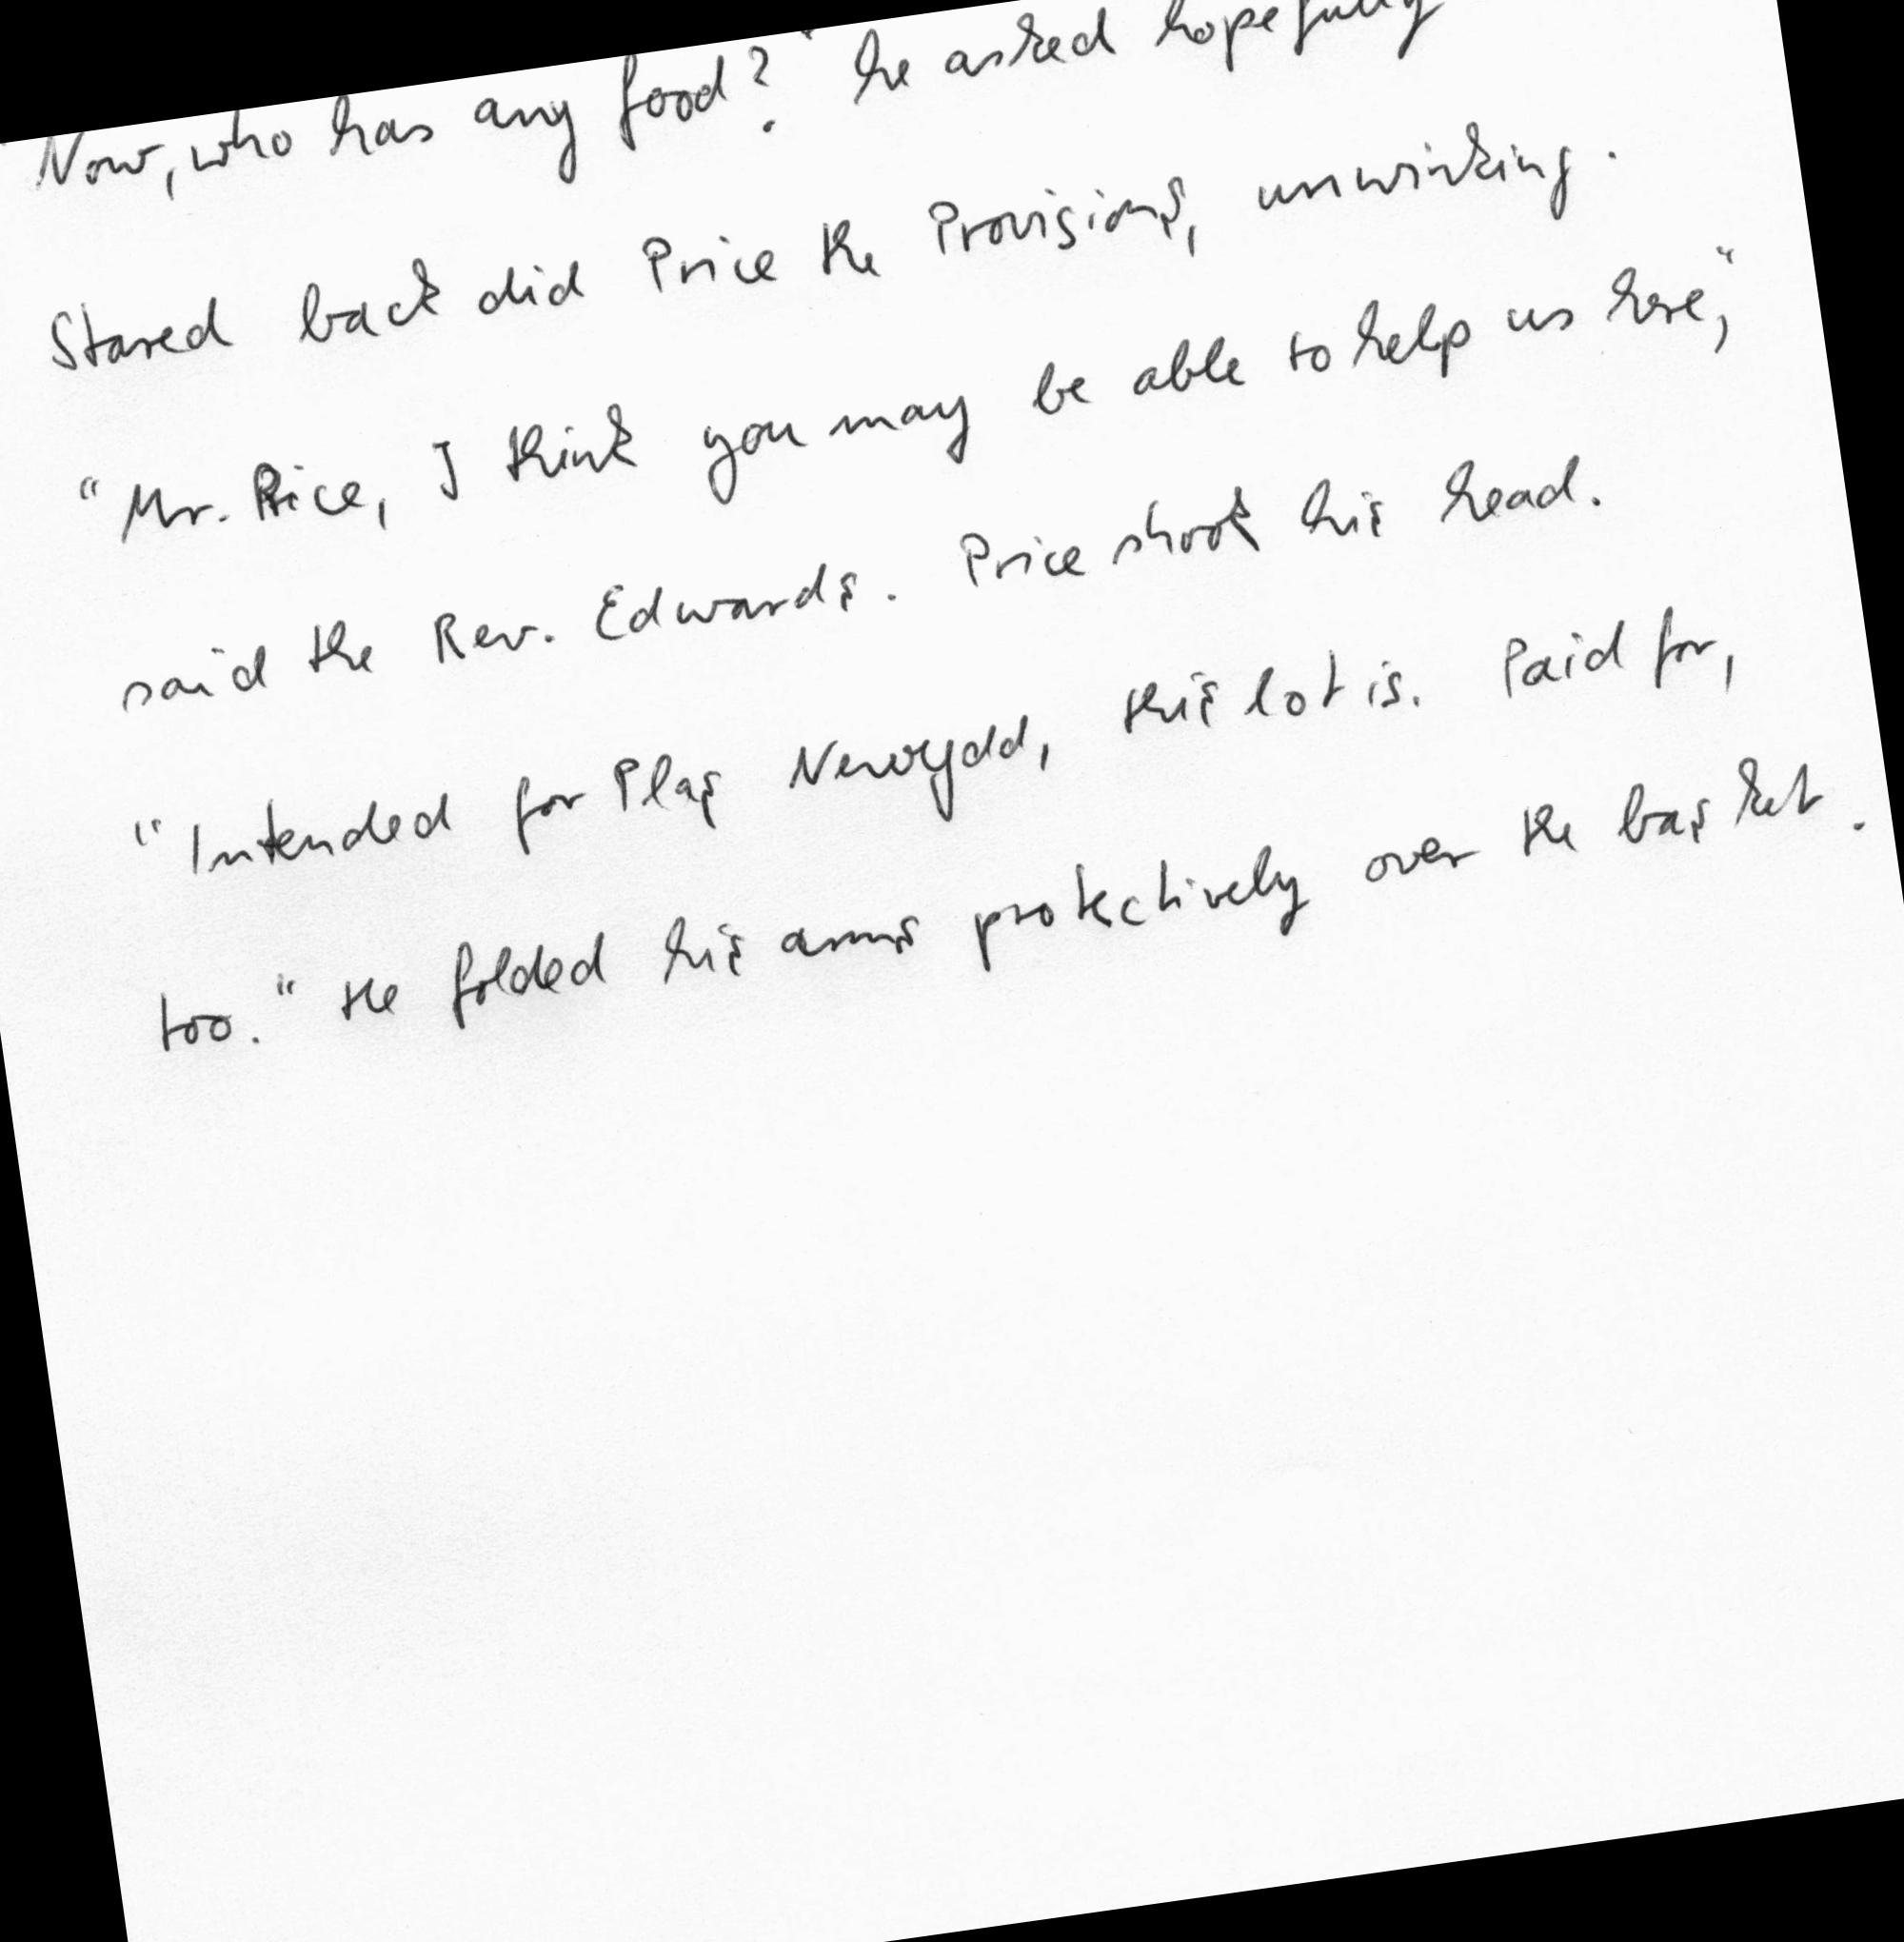 Now, who has any food?" he asked hopefully
Stared back did Price the Provisions, unwinking.
"Mr. Price, I think you may be able to help us here,"
said the Rev. Edwards. Price shook his head.
"Intended for Plas Newydd, this lot is. Paid for,
too." He folded his arms protectively over the basket.